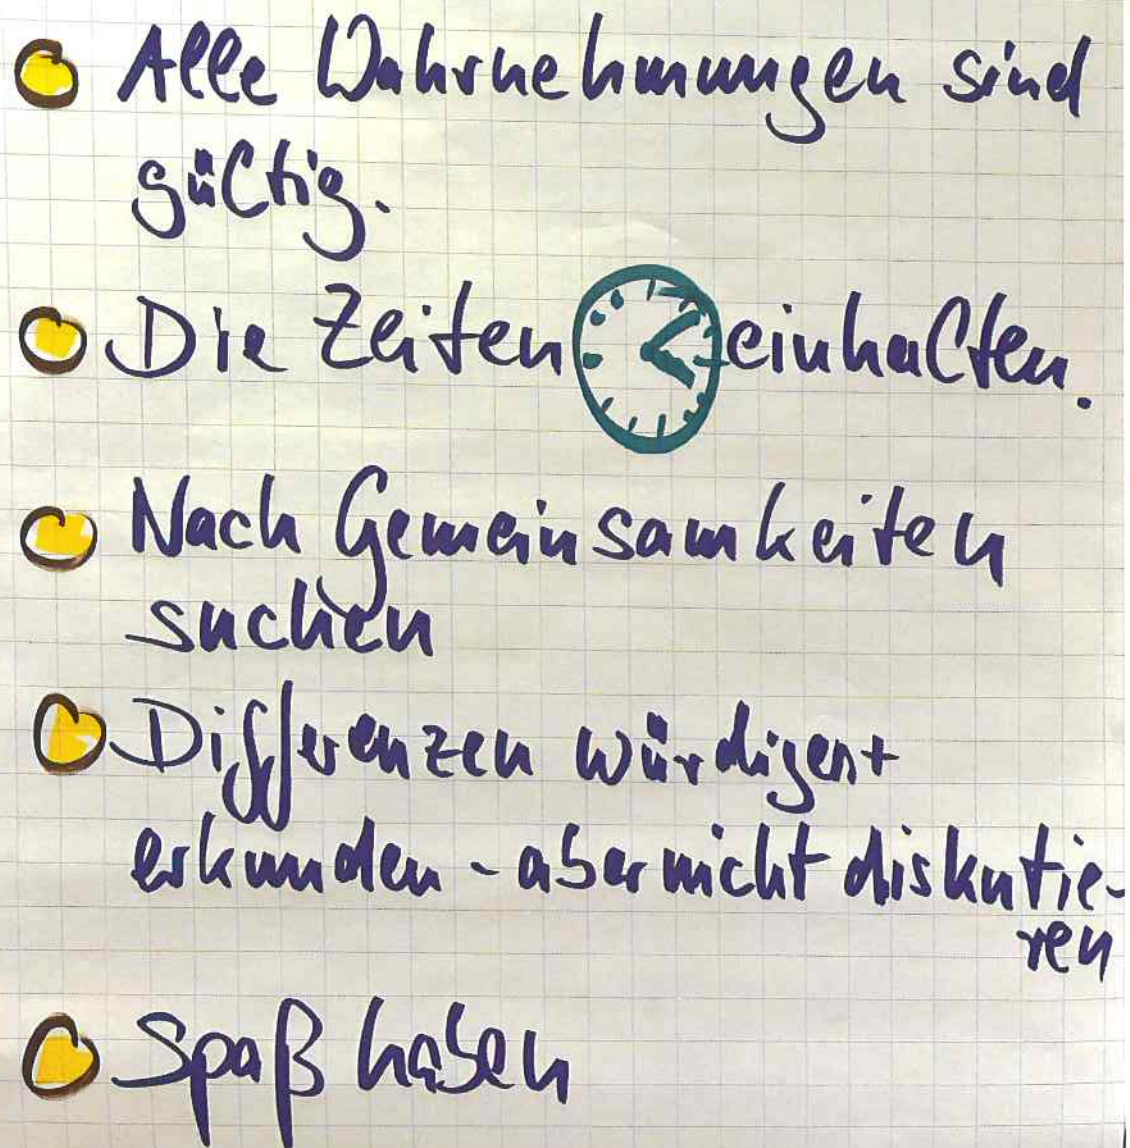 Alle Wahrnehmungen sind
gültig.
Die Zeiten einhalten.
Nach Gemeinsamkeiten
suchen
Differenzen würdigen +
erkunden - aber nicht diskutie-
ren
Spaß haben